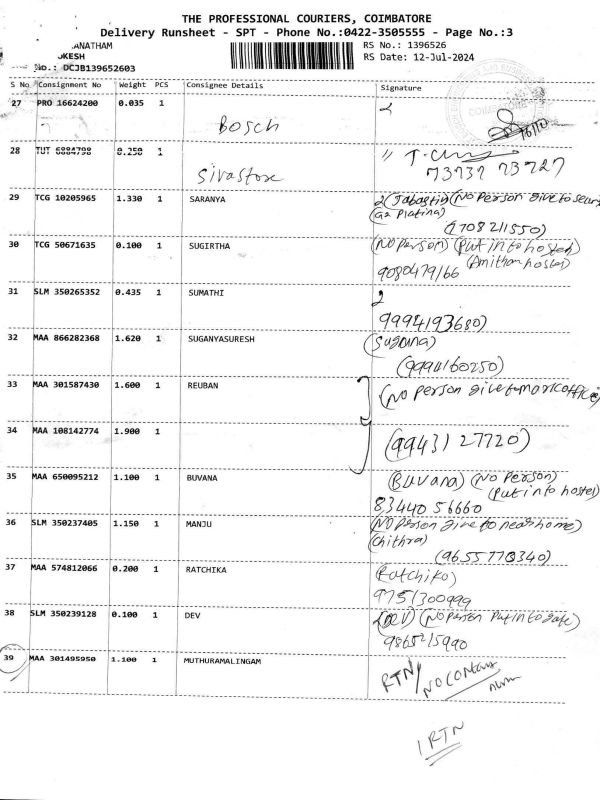 THE PROFESSIONAL COURIERS, COIMBATORE
Delivery Runsheet - SPT - Phone No.:0422-3505555 - Page No.:3
ANATHAM RS No.: 1396526
OKESH RS Date: 12-Jul-2024
No.: DCJB139652603
S No Consignment No Weight PCS Consignee Details Signature
27 PRO 16624200 0.035 1
Bosch
28 TUT 6884798 0.250 1
Sivastore 73737 73727
29 TCG 10205965 1.330 1 SARANYA (No person give to secur
(G2 Platina)
(1708211550)
30 TCG 50671635 0.100 1 SUGIRTHA (No person) (Put in to hostel)
9080479166 (Amithan hostel)
31 SLM 350265352 0.435 1 SUMATHI
9994193680)
32 MAA 866282368 1.620 1 SUGANYASURESH (Suguna)
(9994160250)
33 MAA 301587430 1.600 1 REUBAN (No person give to office
34 MAA 108142774 1.900 1 (99431 27720)
35 MAA 650095212 1.100 1 BUVANA (Buvana) (No person)
(Put in to hostel
83440 56660
36 SLM 350237405 1.150 1 MANJU (No person give to near home)
(Chithra)
(9655770340)
37 MAA 574812066 0.200 1 RATCHIKA (Ratchika)
9751300999
38 SLM 350239128 0.100 1 DEV (DEV) (No person Put in to gate)
9865215990
39 MAA 301495950 1.100 1 MUTHURAMALINGAM RTN/
No contact
num
1 RTN